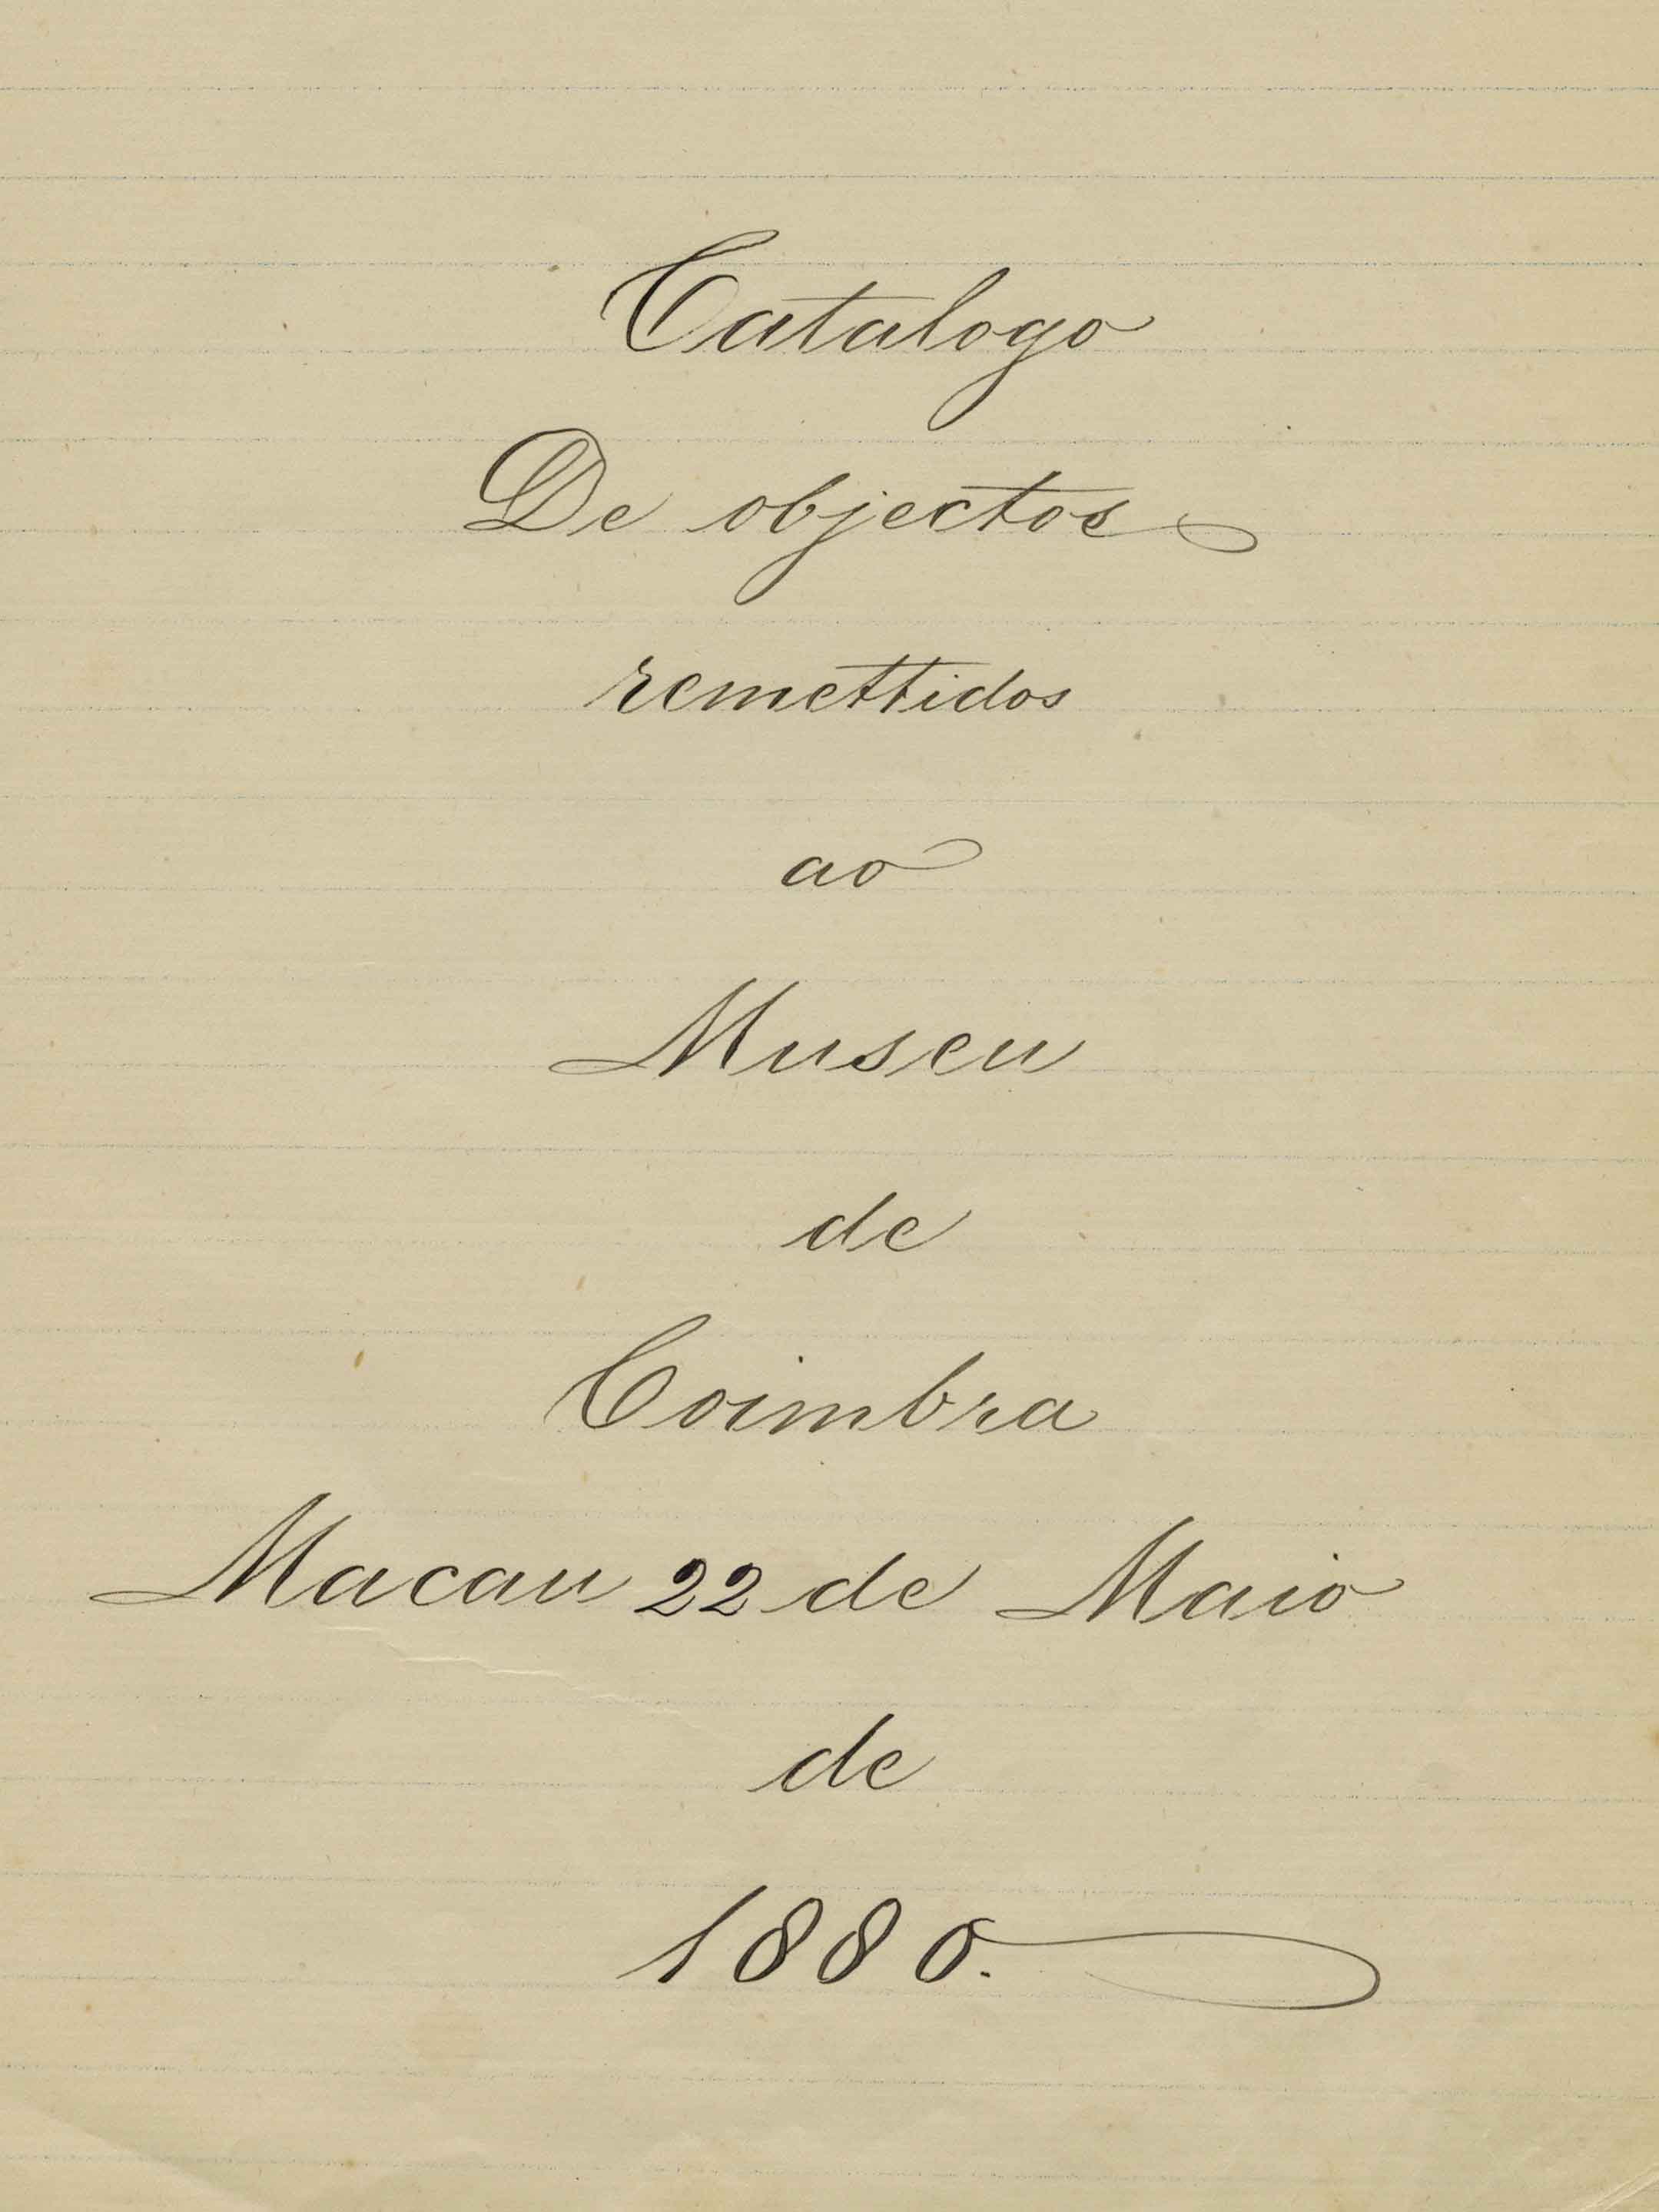 Catalogo
De objectos
remettidos
ao
Museu
de
Coimbra
Macau 22 de Maio
de
1880.